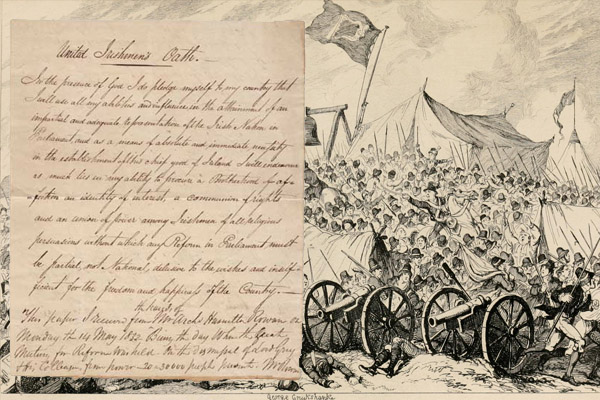 United Irishmens Oath.—
In the presence of God I do pledge myself to my country that
I will use all my abilities and influence in the attainment of an
impartial and adequate representation of the Irish Nation in
Parliament and as a means of absolute and immediate necessity
in the establishment of this chief good of Ireland I will endeavour
as much lies in my ability to procure a Brotherhood of af-
fection an identity of interest, a communion of rights
and an union of power among Irishmen of all religious
persuasions without which any Reform in Parliament must
be partial, not National, delusive to the wishes and insuf-
ficient for the freedom and happiness of the Country—
the hands of
This paper I received from Mr Archd Hamilton Rowan on
Monday the 14 May 1832 Being the day When the Great
Meeting for Reform was held On the dismissal of Lord Grey
& his from power 20 or 30000 people present.
George Cruikshank